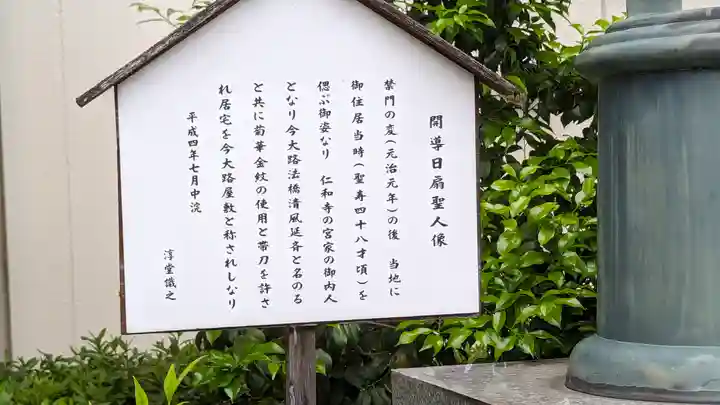 開導日扇聖人像
禁門の変(元治元年)の後 当地に
御住居当時(聖寿四十八才頃)を
偲ぶ御姿なり 仁和寺の宮家の御内人
となり今大路法橋清風延斉と名のる
と共に菊華金紋の使用と帯刀を許さ
れ居宅を今大路屋敷と称されしなり
平成四年七月中浣
淳堂識之